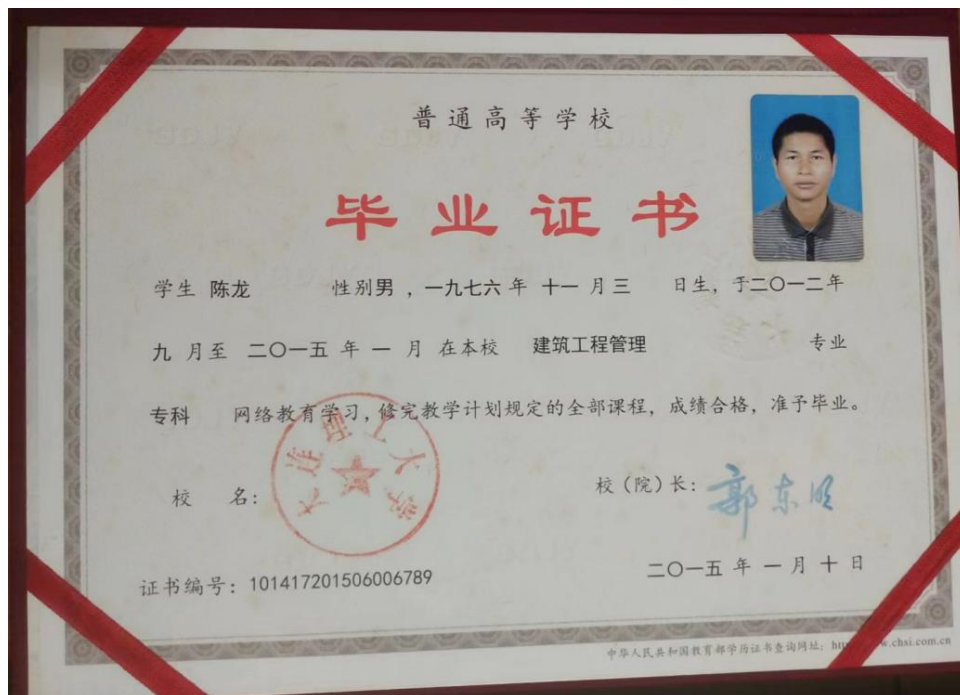 普通高等学校
毕业证书
学生 陈龙 性别男，一九七六年 十一月三 日生，于二〇一二年
九月至 二〇一五年一月在本校 建筑工程管理 专业
专科 网络教育学习，修完教学计划规定的全部课程，成绩合格，准予毕业。
大连理工大学
校 名：
校（院）长：郭东明
二〇一五年一月十日
证书编号：101417201506006789
中华人民共和国教育部学历证书查询网址：w.chsi.com.cn